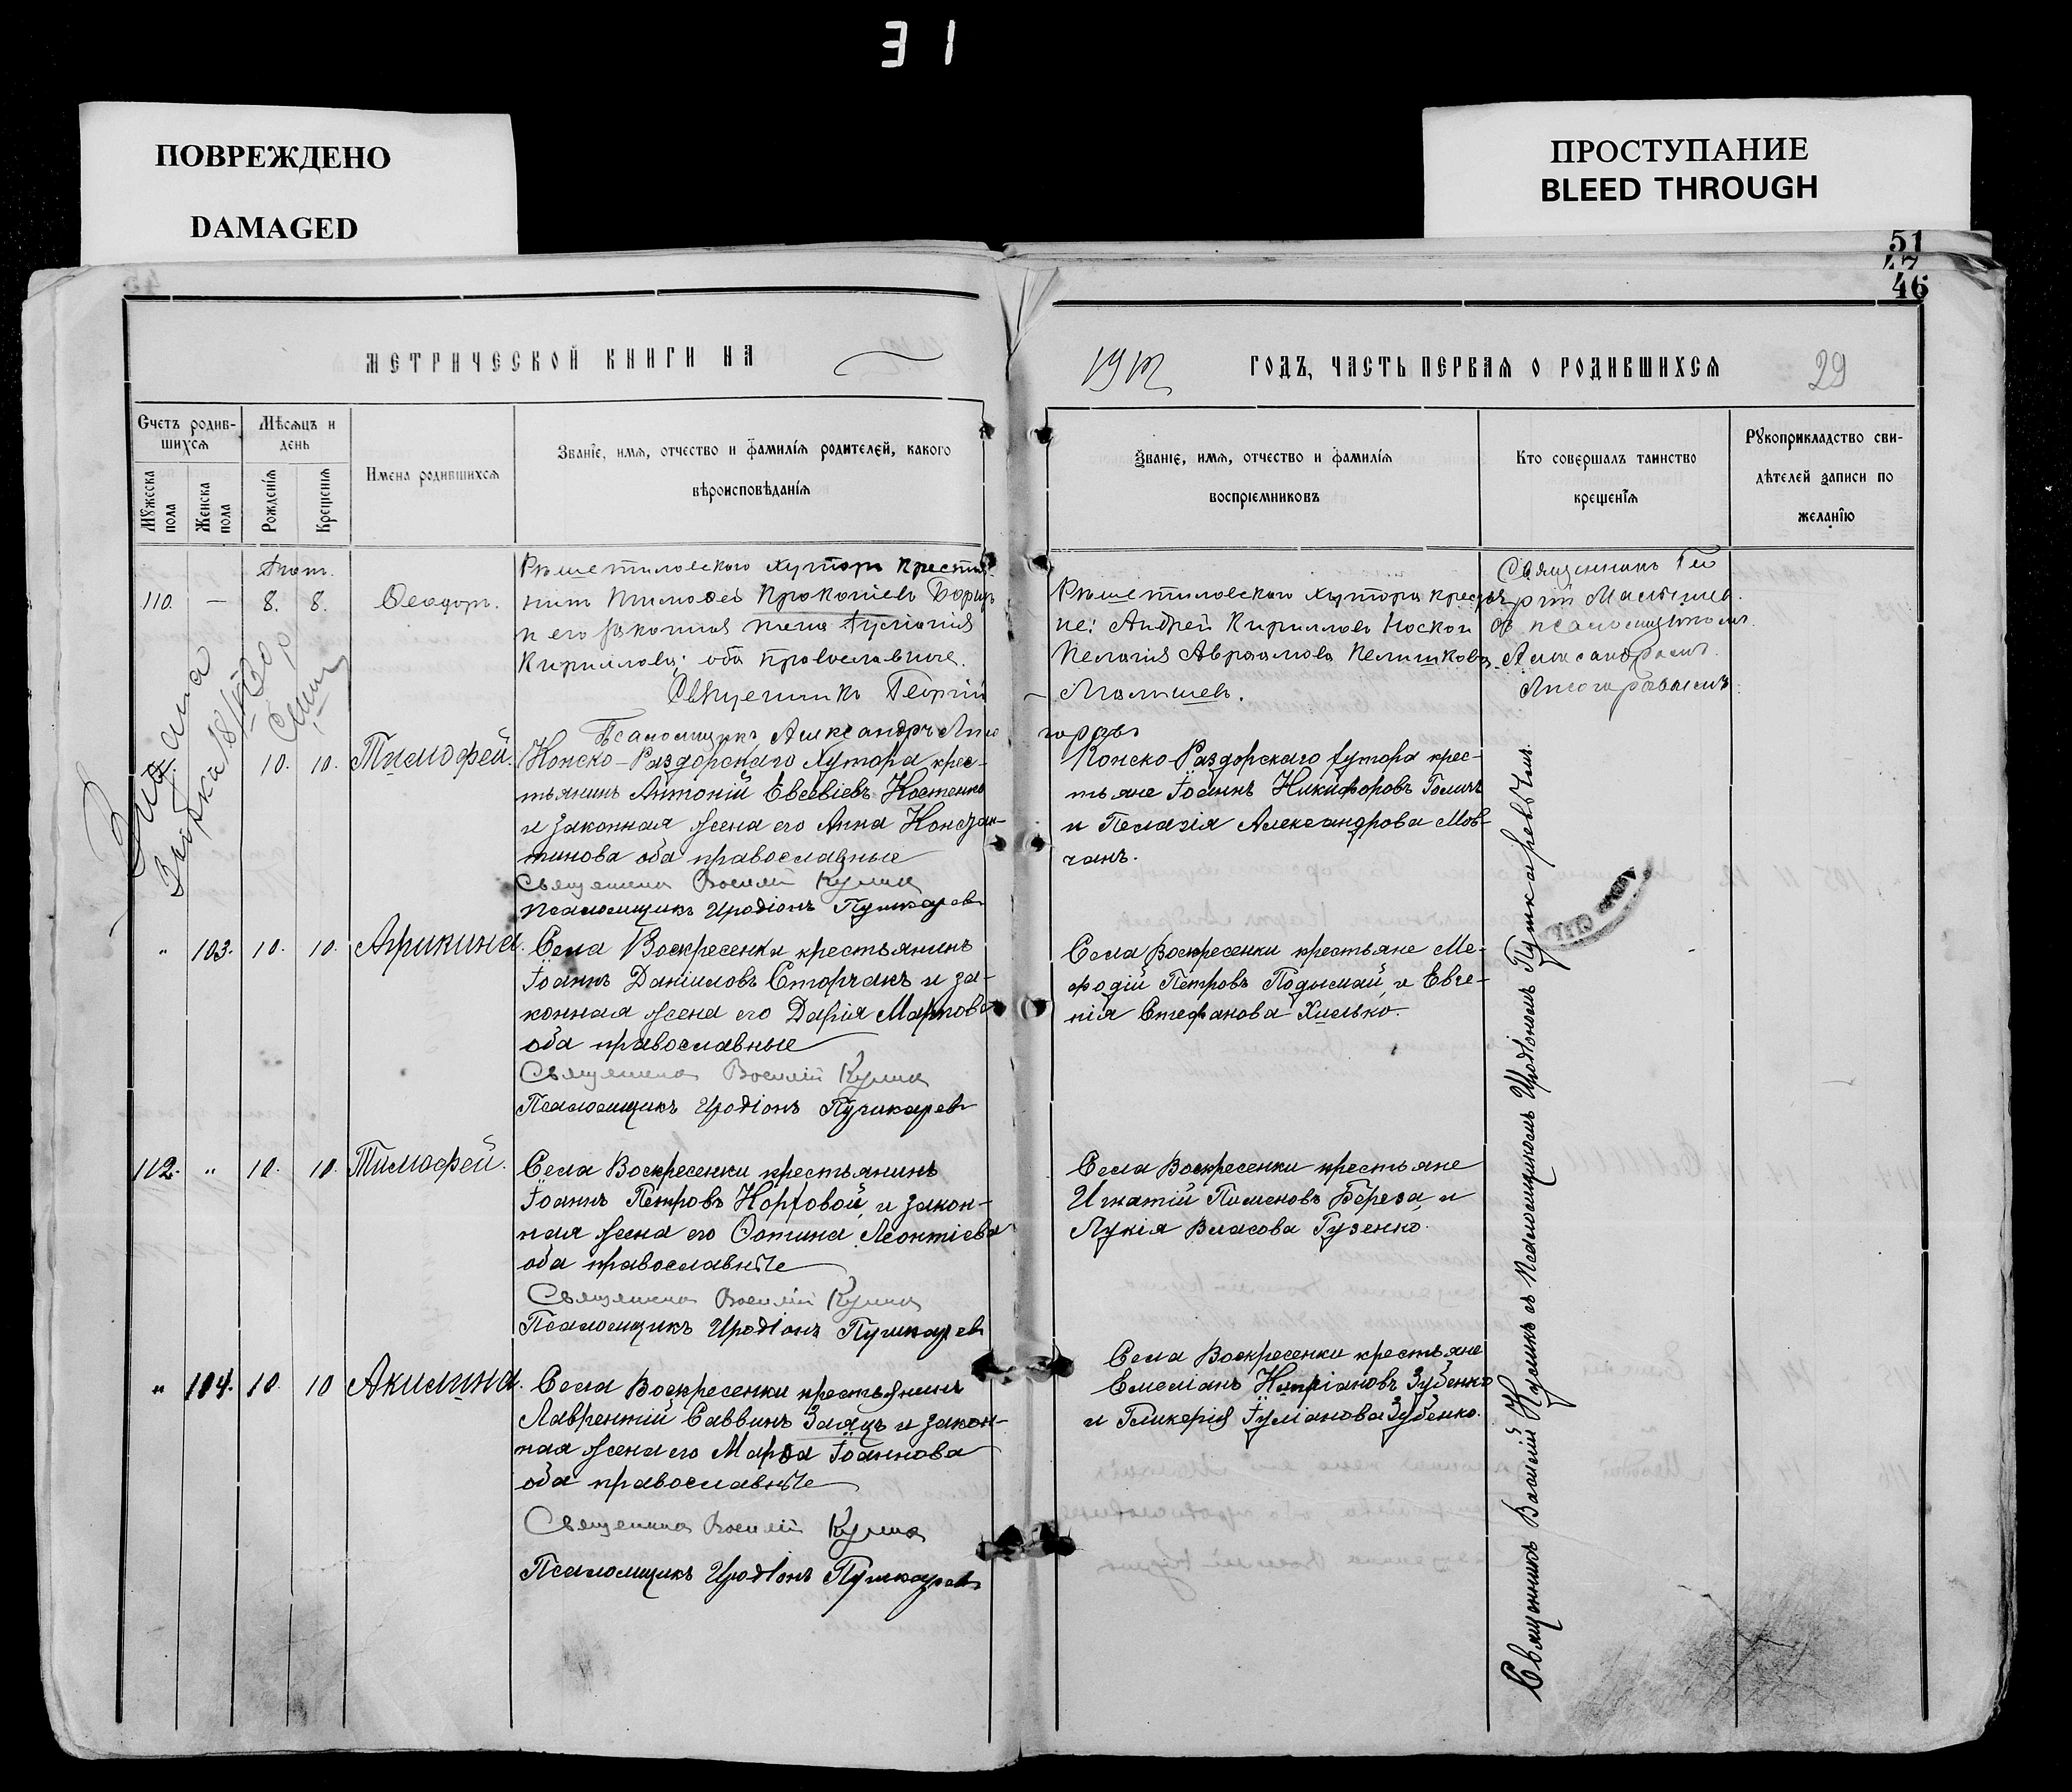 31
ПОВРЕЖДЕНО
DAMAGED
ПРОСТУПАНИЕ
BLEED THROUGH
51
47
46
МЕТРИЧЕСКОЙ КНИГИ НА
1912 ГОДЪ, ЧАСТЬ ПЕРВАЯ О РОДИВШИХСЯ
29
Счетъ родив-
шихся
Мужеска пола
Женска пола
Мѣсяцъ и
день
Рожденія
Крещенія
Имена родившихся
Званіе, имя, отчество и фамилія родителей, какого
вѣроисповѣданія
Званіе, имя, отчество и фамилія
воспріемниковъ
Кто совершалъ таинство
крещенія
Рукоприкладство сви-
дѣтелей записи по
желанію
110. — 8. 8. Ѳеодоръ.
Рѣшетиловского хутора крестья-
нинъ Тимофей Прокопіевъ
и его законная жена
Кириллова; оба православные.
Священникъ Георгій
Малышев.
Псаломщикъ Александръ Лисо
горовъ
Рѣшетиловского хутора крестья
не: Андрей Кирилловъ Носком
Пелагія Авраамова
Священникъ Гео
ргій Малышев.
съ псаломщикомъ
Александромъ
Лисогоровымъ
10. 10. Тимофей.
Конско-Раздорскаго хутора крес-
тьянинъ Антоній Евсевіевъ Костенко
и законная жена его Анна Констан-
тинова оба православные
Священникъ Василій Кулик
Псаломщикъ Иродіонъ Пушкарев
Конско-Раздорскаго хутора крес-
тьяне Іоаннъ Никифоровъ
и Пелагія Александрова Мов-
чанъ.
" 103. 10. 10. Агрикина.
Села Воскресенки крестьянинъ
Іоаннъ Даніиловъ Сторчакъ и за-
конная жена его Дарія
оба православные
Священникъ Василій Кулик
Псаломщикъ Иродіонъ Пушкарев
Села Воскресенки крестьяне Ме-
ѳодій Петровъ и Евге-
нія Стефанова Хилько.
112. " 10. 10. Тимофей.
Села Воскресенки крестьянинъ
Іоаннъ Петровъ Корховой, и закон-
ная жена его Фотина Леонтіева
оба православные
Священникъ Василій Кулик
Псаломщикъ Иродіонъ Пушкарев
Села Воскресенки крестьяне
Игнатій Пименовъ Береза, и
Лукія Власова Гузенко.
" 104. 10. 10 Акилина.
Села Воскресенки крестьянинъ
Лаврентій Саввинъ Заяцъ и закон-
ная жена его Марѳа Іоаннова
оба православные
Священникъ Василій Кулик
Псаломщикъ Иродіонъ Пушкарев
Села Воскресенки крестьяне
Емеліанъ Кипріановъ Зубенко
и Гликерія Іуліанова Зубенко.
Священникъ Василій Куликъ съ Псаломщикомъ Иродіономъ Пушкаревымъ.